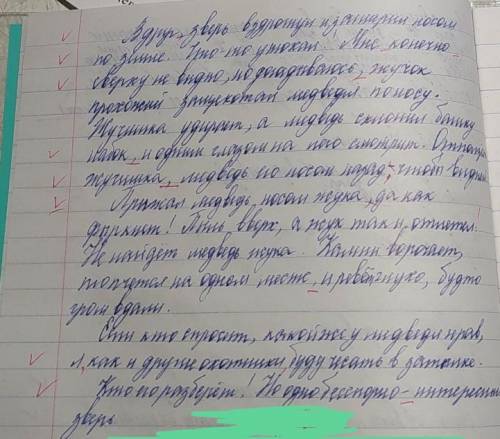 Вдруг зверь вздрогнул и зашарил носом
по земле. Что-то унюхал! Мне, конечно
сверху не видно, но догадываюсь, жучок
прохожий защекотал медведя по носу.
Жучишка удирает, а медведь склонил башку
набок, и одним глазом на него смотрит.
жучишка, медведь его носом назад, чтоб
Прижал медведь, носом жука, да как
фыркнет! Пыль, вверх, а жук так и отлетел!
Не найдёт медведь жука. Камни ворочает,
топчется на одном месте, и ревёт глухо, будто
гром вдали.
Если кто спросит, какой же у медведя нрав,
я, как и другие охотники, буду чесать в затылке.
Кто его разберёт! Но одно бесспорно - интересный
зверь